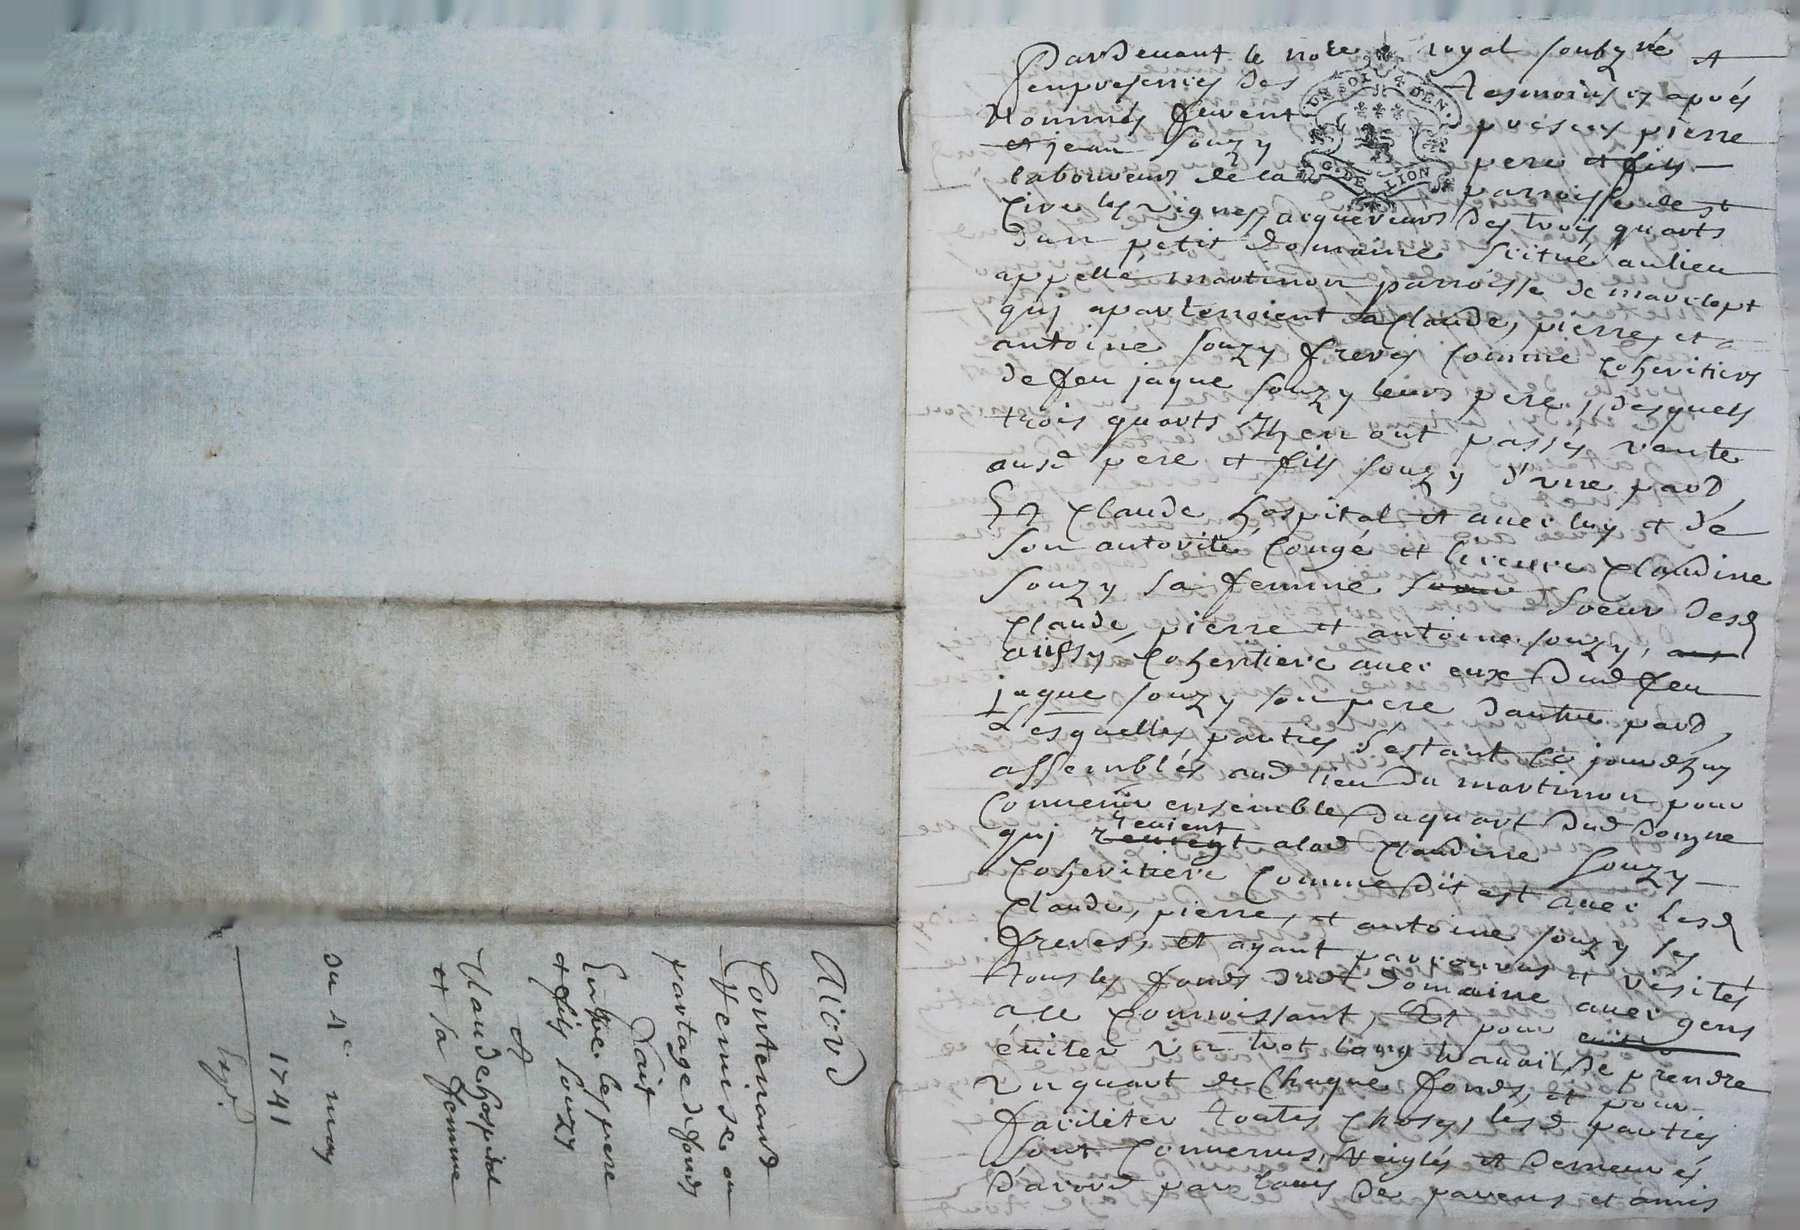 Acord
Contenand
Remise ou
partage de fonds
Fait
Entre les pere
et fils Souzy
et
Claude hospital
et sa femme
du 4e may
1741
Expd.
Pardevant le nore royal soubzné et
enpresences des tesmoins cy aprés
nommés furent présens pierre
et jean Souzy pere et fils
laboureurs de la parroisse de st
Cire les vignes, acquereurs des trois quarts
dun petit domaine scitué au lieu
appellé martinon parroisse de marclopt
quj apartenoient a Claude, pierre, et
antoine Souzy freres comme Coheritiers
de feu jaque Souzy leurs pere, desquels
trois quarts Ilz en ont passés vante
ausd pere et fils Souzy d'vne pard,
Et Claude hospital et avec luy et de
son autorité, Congé et licence Claudine
Souzy sa femme soeur desd
Claude, pierre et antoine Souzy,
aussy Coheritiere avec eux dud feu
jaque Souzy son pere dautre pard,
Lesquelles parties s'estant Ce jourdhuy
assemblés aud lieu du martinon pour
Convenir ensemble du quart dud domne
quj revient alad Claudine Souzy
Coheritiere Comme dit est avec lesd
Claude, pierre, et antoine Souzy ses
freres, et ayant parcourus et visités
tous les fonds dud domaine avec gens
a ce Connoissant, Et pour
éviter vn trot long travail de prendre
vn quart de Chaque fonds, et pour
faciliter toutes Choses, lesd parties
sont Convenus, Reiglés et demeurés
d'acord par lavis de parens et amis
DE SOLS 4 DEN.
G. DE LION